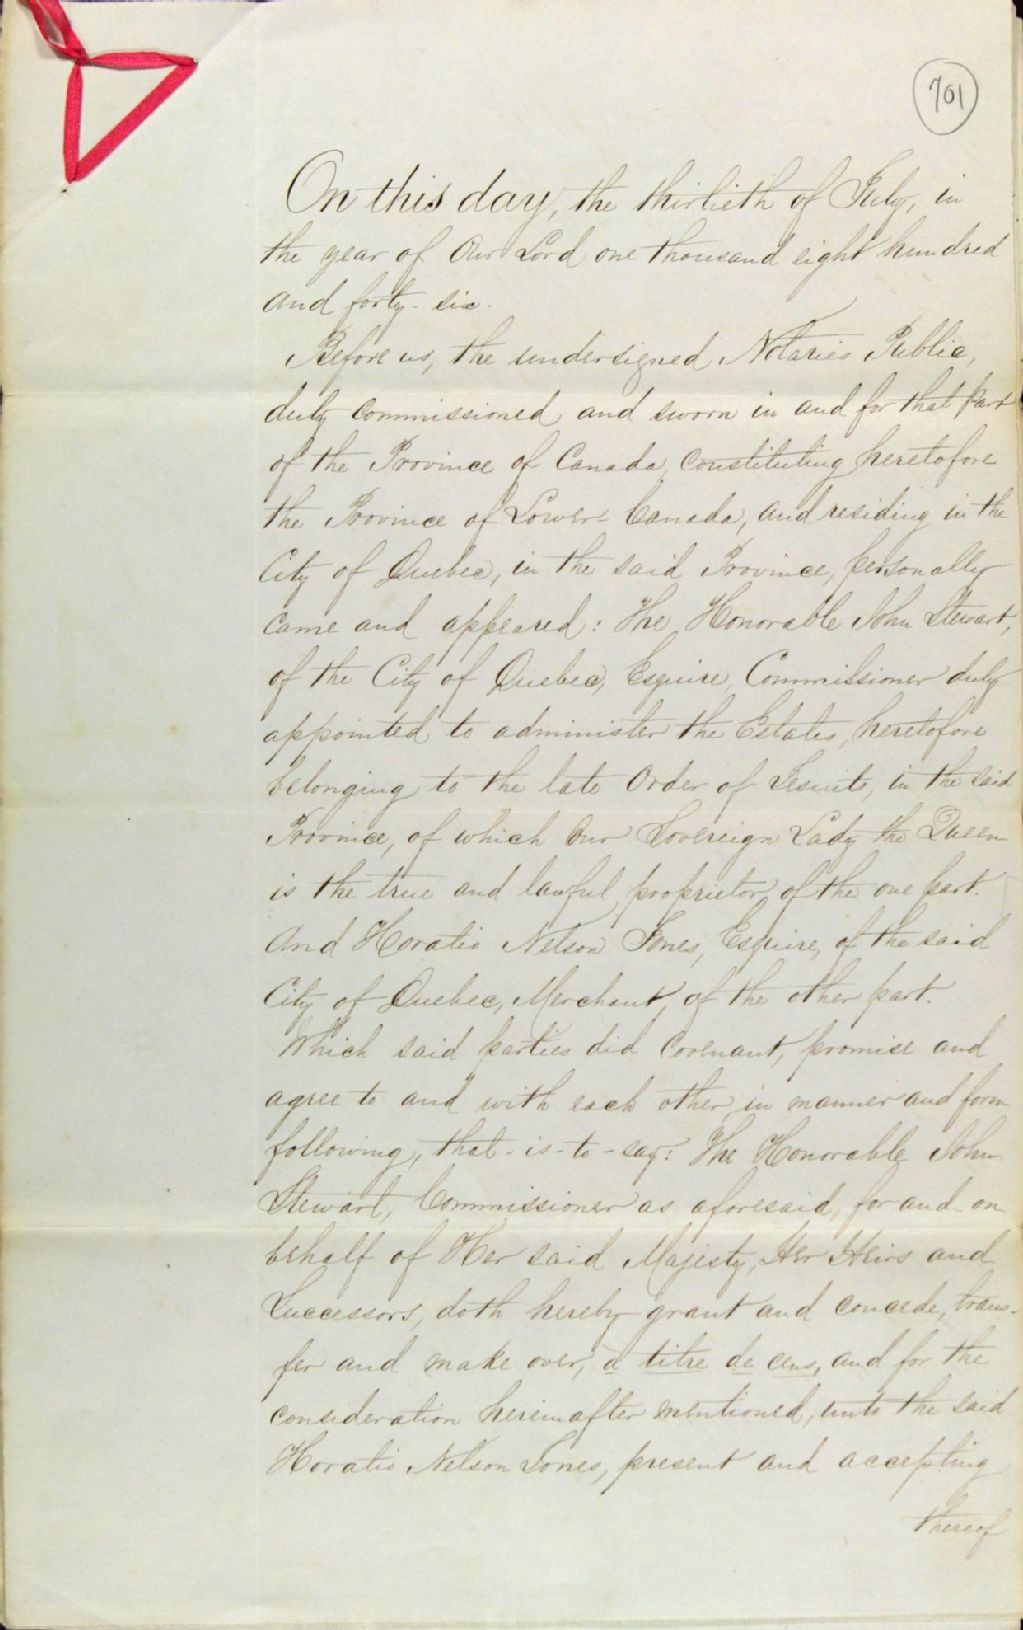 701
On this day, the thirtieth of July, in
the year of Our Lord one thousand eight hundred
and forty-six.
Before us, the undersigned Notaries Public,
duly commissioned and sworn in and for that part
of the Province of Canada, constituting heretofore
the Province of Lower-Canada, and residing in the
City of Quebec, in the said Province, personally
came and appeared: The Honorable John Stewart,
of the City of Quebec, Esquire, Commissioner duly
appointed to administer the Estates, heretofore
belonging to the late Order of Jesuits, in the said
Province, of which Our Sovereign Lady the Queen
is the true and lawful proprietor, of the one part.
And Horatio Nelson Jones, Esquire, of the said
City of Quebec, Merchant, of the other part.
Which said parties did covenant, promise and
agree to and with each other, in manner and form
following, that-is-to-say: The Honorable John
Stewart, Commissioner as aforesaid, for and on
behalf of Her said Majesty, Her Heirs and
Successors, doth hereby grant and concede, trans-
fer and make over, à titre de cens, and for the
consideration hereinafter mentioned, unto the said
Horatio Nelson Jones, present and accepting
thereof